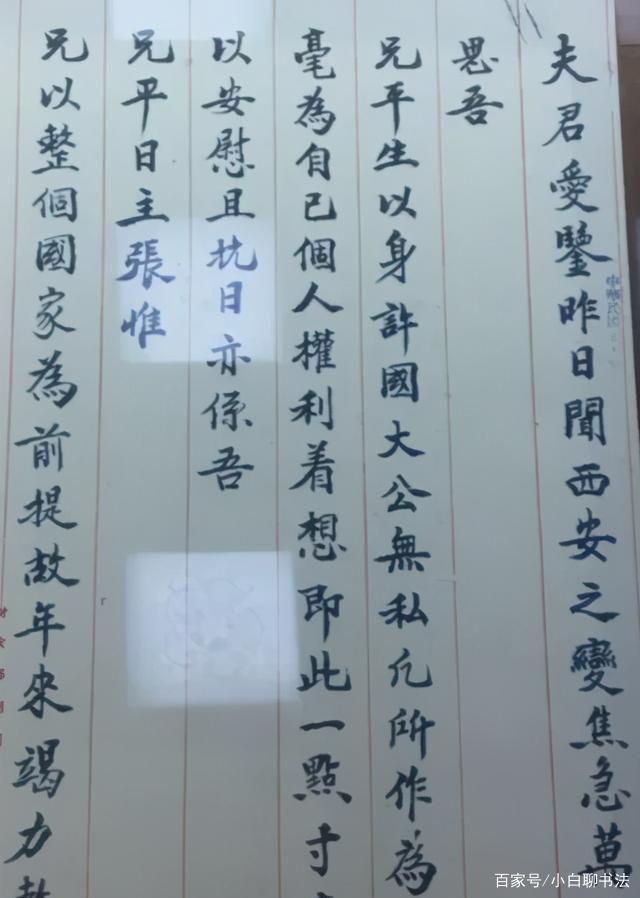 夫君愛鑒昨日聞西安之變焦急萬
思吾
兄平生以身許國大公無私凡所作為
毫為自己個人權利着想即此一點寸
以安慰且抗日亦係吾
兄平日主張惟
兄以整個國家為前提故年來竭力
百家号/小白聊书法